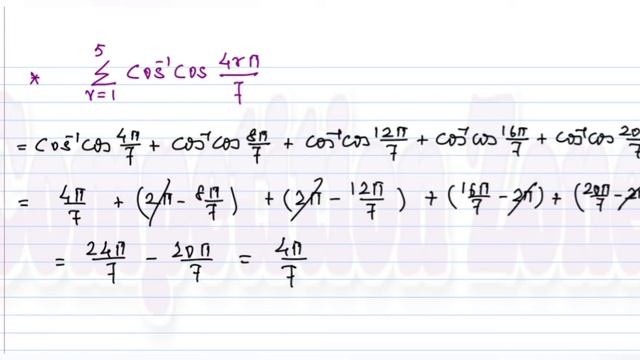 * ∑_{r=1}^{5} cos⁻¹cos 4rπ/7
= cos⁻¹cos 4π/7 + cos⁻¹cos 8π/7 + cos⁻¹cos 12π/7 + cos⁻¹cos 16π/7 + cos⁻¹cos 20/7
= 4π/7 + (2π - 8π/7) + (2π - 12π/7) + (16π/7 - 2π) + (20π/7 - 2
= 24π/7 - 20π/7 = 4π/7